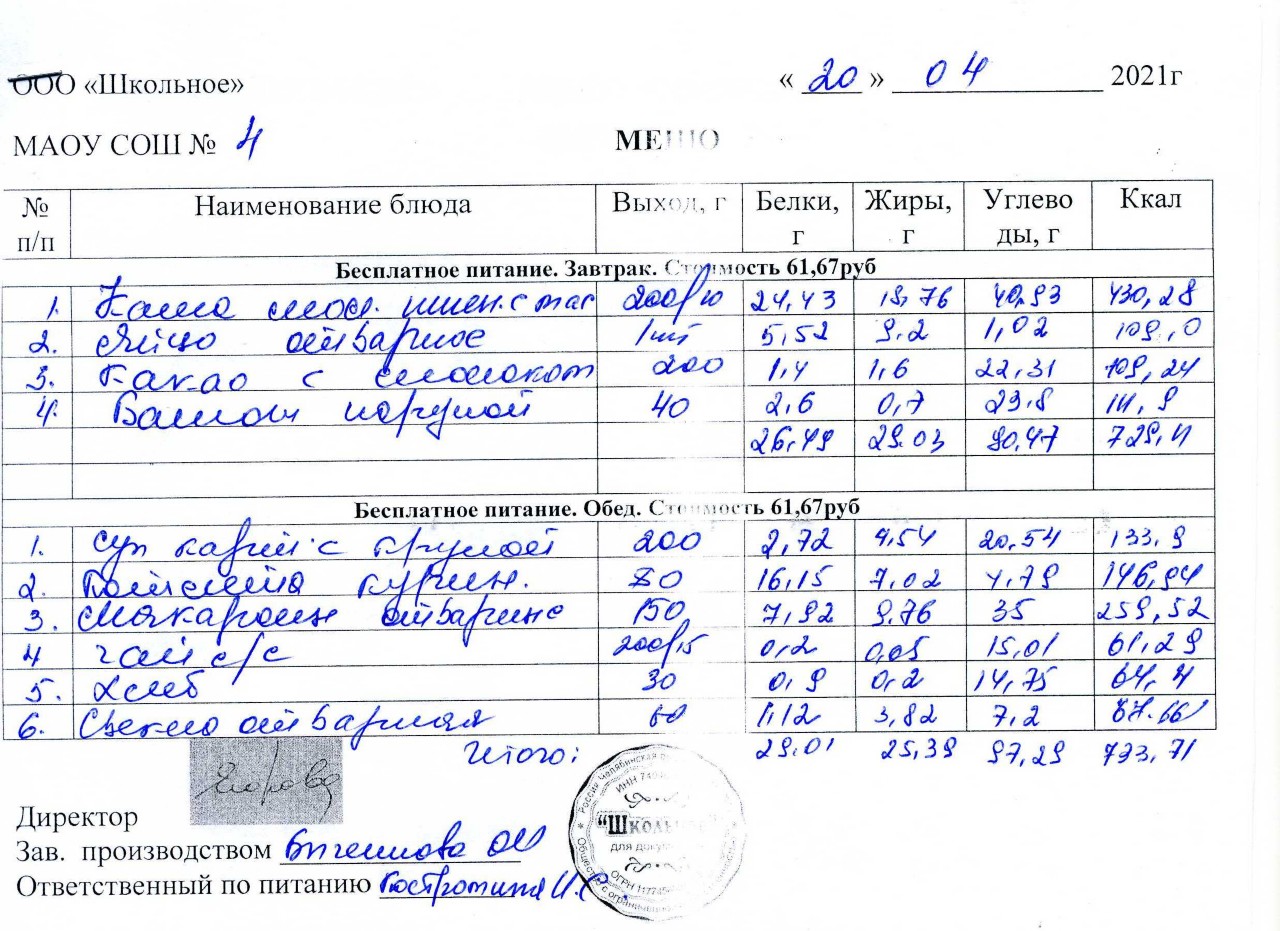 ООО «Школьное» « 20 » 04 2021г
МАОУ СОШ № 4 МЕНЮ
№ п/п Наименование блюда Выход, г Белки, г Жиры, г Углево ды, г Ккал
Бесплатное питание. Завтрак. Стоимость 61,67руб
1. Каша мол. пшен. с мас 200/10 24,43 18,76 40,93 430,28
2. Яйцо отварное 1шт 5,52 9,2 1,02 109,0
3. Какао с молоком 200 1,4 1,6 22,31 109,24
4. Батон нарезной 40 2,6 0,7 23,8
26,49 29.03 90,47
Бесплатное питание. Обед. Стоимость 61,67руб
1. Суп картоф. с крупой 200 2,72 4,54 20,54 133,9
2. Котлета курин. 16,15 7,02 4,79 146,94
3. Макароны отварные 150 7,92 9,76 35 259,52
4 чай с/с 200/15 0,2 0,05 15,01 61,29
5. Хлеб 30 0,9 0,2 14,75
6. Свекла отварная 60 1,12 3,82 7,2
Итого: 29.01 25,39 97,29 773,71
Директор
Зав. производством
Ответственный по питанию Костромина И.С.
"Школьное"
для документов